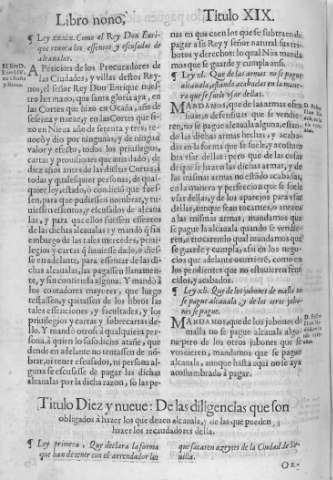 Libro nono,
Titulo XIX.
¶ Ley xxxix. Como el Rey Don Enri
que reuoca las essenciones y escusados de
alcaualas.
A Peticion de los Procuradores de
las Ciudades, y villas destos Rey-
nos, el señor Rey Don Enrique nues-
tro hermano, que santa gloria aya, en
las Cortes que hizo en Ocaña, año de
sesenta y nueue, y en las Cortes que hi-
zo en Nieua año de setenta y tres, re-
uocò y dio por ningunas, y de ningun
valor y efecto, todos los priuilegios,
cartas y prouisiones que auia dado, de
diez años antes de las dichas Cortes, à
todas y qualesquier personas, de qual-
quier ley, estado, ò condicion que fues-
sen, para que pudiessen nombrar, y tu-
uiessen essentos, y escusados de alcaua
las, y para que ellos fuessen essentos
de las dichas alcaualas: y mandò q̃ sin
embargo de las tales mercedes, priui-
legios y cartas
se en adelante, para essentar de las di-
chas alcaualas, las pagassen llanamen-
te, y sin contienda alguna. Y mandò à
los contadores mayores, que luego
testassen, y quitassen de los libros las
tales essenciones, y facultades, y los
priuilegios y cartas y sobrecartas de-
llo. Y mandò otrosi à qualquier per-
sona, à quien lo susodicho atañe, que
dende en adelante no tentassen de nõ-
brar, ni tener escusados, ni persona al-
guna se escusasse de pagar las dichas
alcaualas por la dicha razon, so las pe-
nas en que caen los que se subtraen de
pagar à su Rey y señor natural sus tri-
butos y derechos: lo qual Nos manda-
mos que se guarde y cumpla assi.
¶ Ley xl. Que de las armas no se pague
alcauala, estando acabadas en la mane-
ra que se suele vsar dellas.
MAndamos, que de las armas ofen
siuas, ò defensiuas que se vendie-
ren, no se pague alcauala alguna, estan-
do las dichas armas hechas, y acaba-
das en la forma que se suele, y acostum
bra vsar dellas: pero que de las cosas
de que se hazen las dichas armas, y de
las mismas armas no estãdo acabadas,
en la manera y perfeccion que se suele
vsar dellas, y de los aparejos para vsar
dellas, aunque sean tocantes, ò anexos
à las mismas armas, mandamos que
se pague la alcauala quando se vendie-
ren, ò trocaren: lo qual mandamos que
se guarde y cumpla, assi en los nego-
cios que adelante ocurrieren, como en
los pendientes que no estuuieren fene-
cidos, y acabados.
¶ Ley xlj. Que de los jubones de malla no
se pague alcauala, y de los otros jubo-
nes se pague.
MAndamos, que de los jubones de
malla no se pague alcauala algu-
na: pero de los otros jubones que se
vendieren, mandamos que se pague
alcauala, aunque hasta aqui no se aya
acostumbrado à pagar.
Titulo Diez y nueue: De las diligencias que son
obligados à hazer los que deuen alcauala, y de las que pueden
hazer los recaudadores della.
¶ Ley primera. Que declara la forma
que han de tener con el arrendador los
que sacaren azeytes de la Ciudad de Se-
uilla.